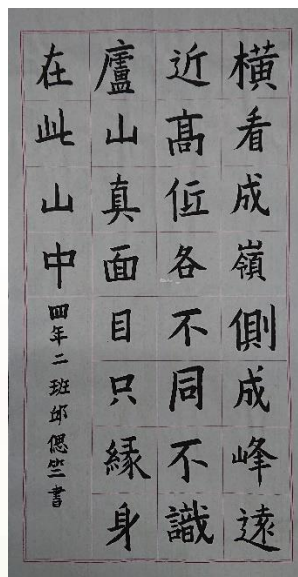 橫看成嶺側成峰遠
近高低各不同不識
廬山真面目只緣身
在此山中
四年二班邱偲竺書